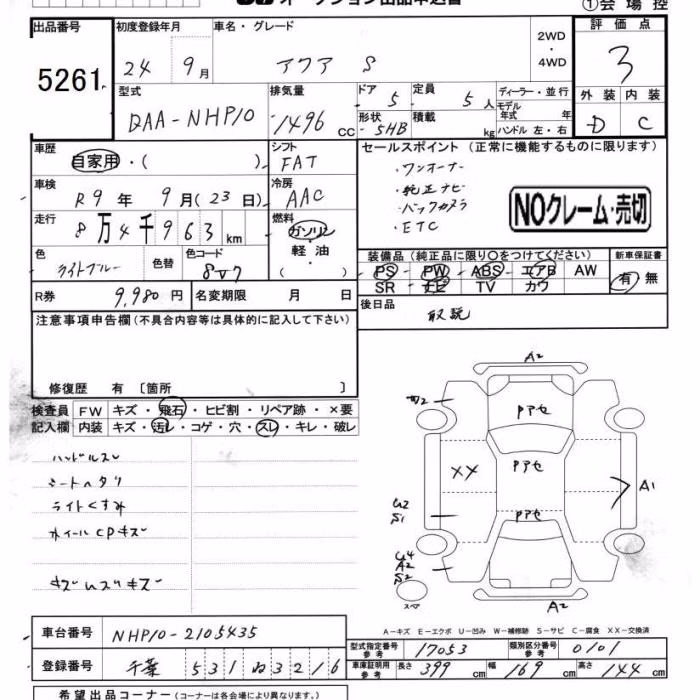 オークション出品申込書
①会場控
出品番号
5261
初度登録年月
24 9月
車名・グレード
アクア S
2WD
・
4WD
評価点
3
外装 内装
D C
型式
DAA-NHP10
排気量
1496 CC
ドア 5
定員 5人
形状 5HB
積載 kg
ディーラー・並行
モデル年式 年
ハンドル 左・右
車歴
自家用・( )
シフト
FAT
車検
R9年 9月(23日)
冷房
AAC
走行
8万4千963 km
燃料
ガソリン
軽・油
( )
色
ライトブルー
色替
色コード
8V7
R券
9,980円
名変期限 月 日
セールスポイント (正常に機能するものに限ります)
・ワンオーナー
・純正ナビ
・バックカメラ
・ETC
NOクレーム・売切
装備品 (純正品に限り○をつけてください)
PS PW ABS エアB AW
SR ナビ TV カワ
新車保証書
有・無
後日品
取説
注意事項申告欄 (不具合内容等は具体的に記入して下さい)
修復歴 有 〔箇所 〕
検査員
記入欄
FW キズ・飛石・ヒビ割・リペア跡・×要
内装 キズ・汚レ・コゲ・穴・スレ・キレ・破レ
ハンドルスレ
シートヘタリ
ライトくすみ
ホイールCPキズ
A2
Pアセ
XX
Pアセ
A1
U2
S1
Pアセ
U4
A2
S2
スペア
A2
A-キズ E-エクボ U-凹み W-補修跡 S-サビ C-腐食 XX-交換済
車台番号
NHP10-2105435
登録番号
千葉 531 ね 3216
型式指定番号
参考
17053
類別区分番号
参考
0101
車庫証明用
参考
長さ 399 cm
幅 169 cm
高さ 144 cm
希望出品コーナー (コーナーは各会場により異なります。)